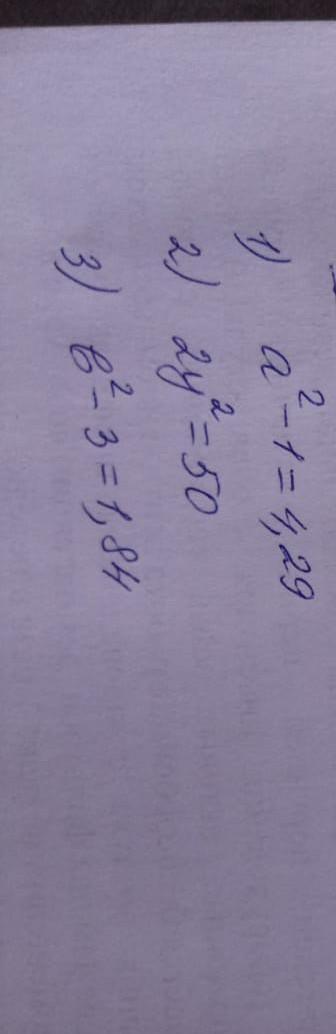 1) a² - 1 = 4,29
2) 2y² = 50
3) в² - 3 = 1,84